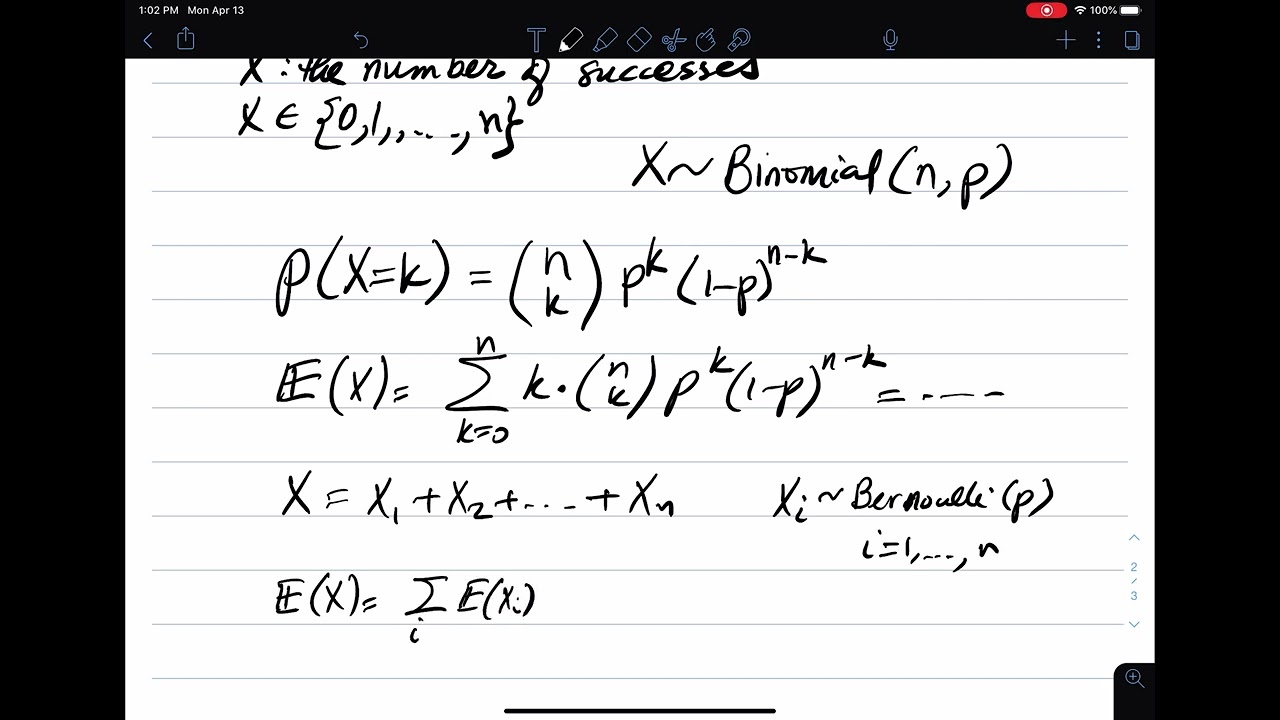 1:02 PM Mon Apr 13
100%
X : the number of successes
X ∈ {0,1,,...,n}
X ~ Binomial(n,p)
P(X=k) = (n k) p^k (1-p)^{n-k}
E(X) = ∑_{k=0}^{n} k·(n k) p^k (1-p)^{n-k} = .---
X = X_1 + X_2 + ... + X_n
X_i ~ Bernoulli(p)
i=1,...,n
E(X) = ∑_i E(X_i)
2
/
3